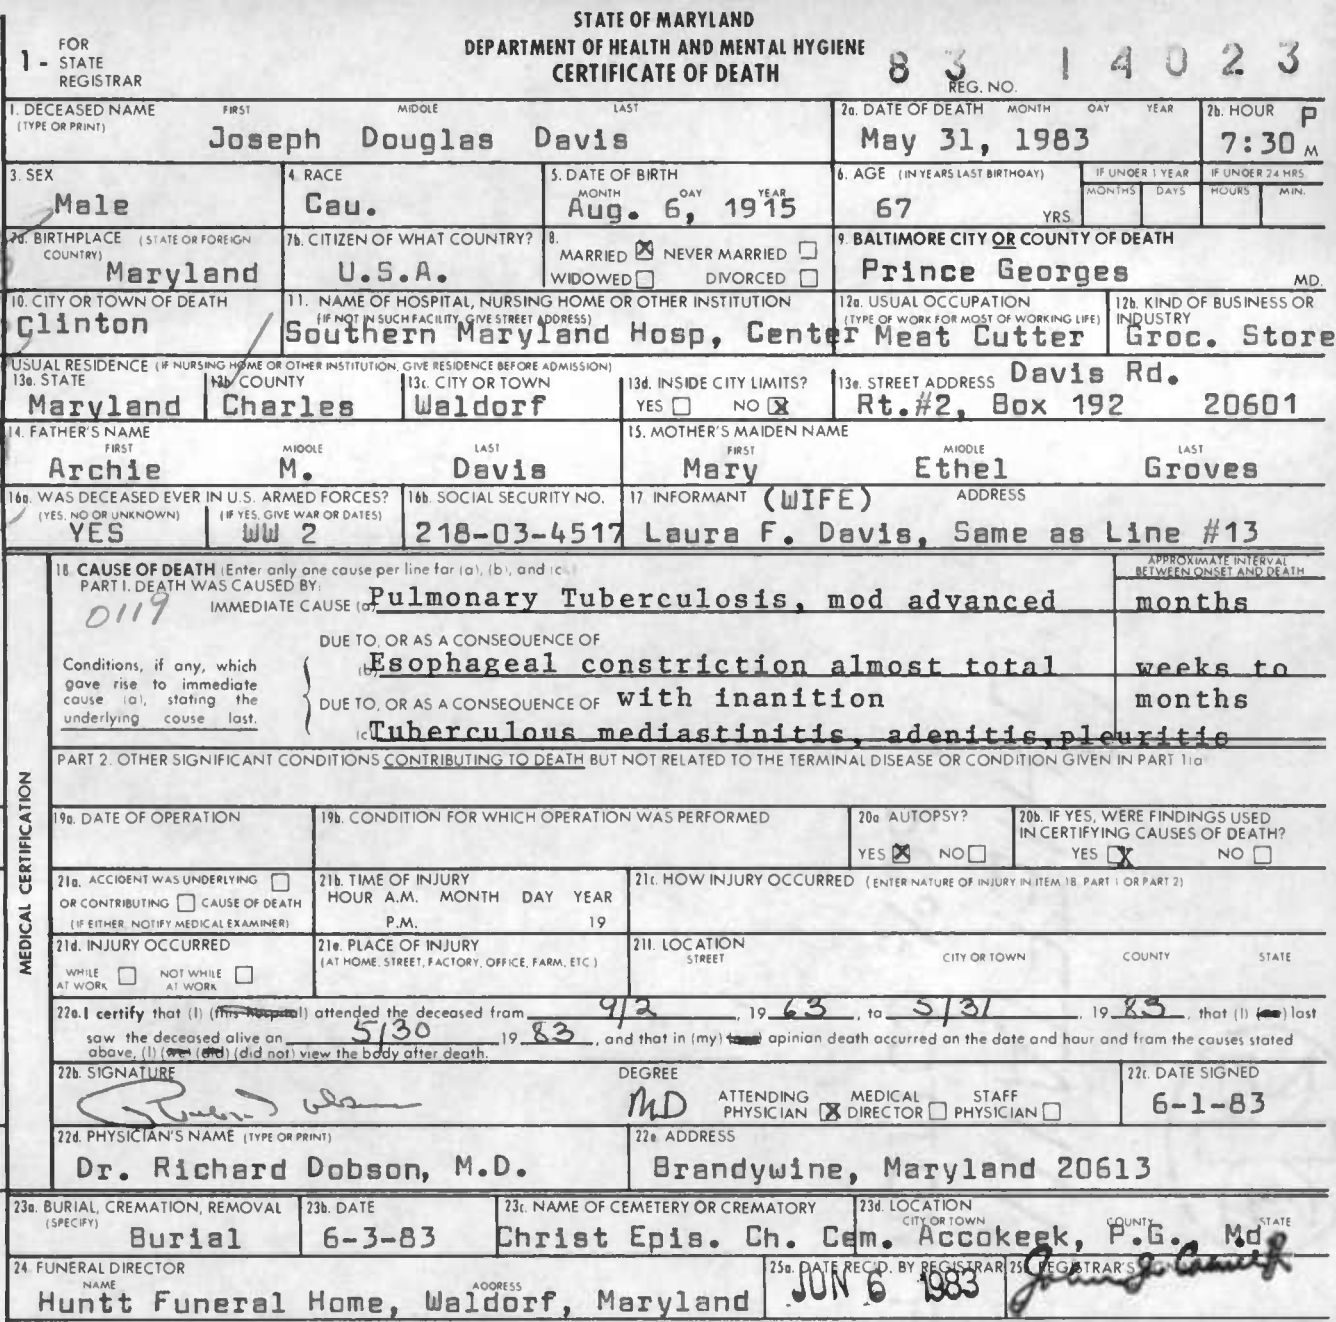 STATE OF MARYLAND
DEPARTMENT OF HEALTH AND MENTAL HYGIENE
CERTIFICATE OF DEATH
1 - FOR STATE REGISTRAR
83 14023
REG. NO.
1. DECEASED NAME (TYPE OR PRINT) FIRST MIDDLE LAST
Joseph Douglas Davis
2a. DATE OF DEATH MONTH DAY YEAR
May 31, 1983
2b. HOUR
7:30 P M
3. SEX
Male
4. RACE
Cau.
5. DATE OF BIRTH MONTH DAY YEAR
Aug. 6, 1915
6. AGE (IN YEARS LAST BIRTHDAY)
67 YRS.
IF UNDER 1 YEAR MONTHS DAYS
IF UNDER 24 HRS. HOURS MIN.
7a. BIRTHPLACE (STATE OR FOREIGN COUNTRY)
Maryland
7b. CITIZEN OF WHAT COUNTRY?
U.S.A.
8. MARRIED X NEVER MARRIED
WIDOWED DIVORCED
9. BALTIMORE CITY OR COUNTY OF DEATH
Prince Georges MD.
10. CITY OR TOWN OF DEATH
Clinton
11. NAME OF HOSPITAL, NURSING HOME OR OTHER INSTITUTION
(IF NOT IN SUCH FACILITY, GIVE STREET ADDRESS)
Southern Maryland Hosp, Center
12a. USUAL OCCUPATION
(TYPE OF WORK FOR MOST OF WORKING LIFE)
Meat Cutter
12b. KIND OF BUSINESS OR INDUSTRY
Groc. Store
USUAL RESIDENCE (IF NURSING HOME OR OTHER INSTITUTION, GIVE RESIDENCE BEFORE ADMISSION)
13a. STATE
Maryland
13b. COUNTY
Charles
13c. CITY OR TOWN
Waldorf
13d. INSIDE CITY LIMITS?
YES NO X
13e. STREET ADDRESS Davis Rd.
Rt.#2, Box 192 20601
14. FATHER'S NAME
FIRST MIDDLE LAST
Archie M. Davis
15. MOTHER'S MAIDEN NAME
FIRST MIDDLE LAST
Mary Ethel Groves
16a. WAS DECEASED EVER IN U.S. ARMED FORCES?
(YES, NO OR UNKNOWN) (IF YES, GIVE WAR OR DATES)
YES WW 2
16b. SOCIAL SECURITY NO.
218-03-4517
17 INFORMANT (WIFE) ADDRESS
Laura F. Davis, Same as Line #13
18. CAUSE OF DEATH (Enter only one cause per line for (a), (b), and (c
APPROXIMATE INTERVAL BETWEEN ONSET AND DEATH
PART I. DEATH WAS CAUSED BY:
0119
IMMEDIATE CAUSE (a) Pulmonary Tuberculosis, mod advanced months
DUE TO, OR AS A CONSEQUENCE OF
Conditions, if any, which gave rise to immediate cause (a), stating the underlying cause last.
(b) Esophageal constriction almost total weeks to
DUE TO, OR AS A CONSEQUENCE OF with inanition months
(c Tuberculous mediastinitis, adenitis,pleuritis
PART 2. OTHER SIGNIFICANT CONDITIONS CONTRIBUTING TO DEATH BUT NOT RELATED TO THE TERMINAL DISEASE OR CONDITION GIVEN IN PART 1(a
MEDICAL CERTIFICATION
19a. DATE OF OPERATION
19b. CONDITION FOR WHICH OPERATION WAS PERFORMED
20a AUTOPSY?
YES X NO
20b. IF YES, WERE FINDINGS USED IN CERTIFYING CAUSES OF DEATH?
YES X NO
21a. ACCIDENT WAS UNDERLYING
OR CONTRIBUTING CAUSE OF DEATH
(IF EITHER, NOTIFY MEDICAL EXAMINER)
21b. TIME OF INJURY
HOUR A.M. MONTH DAY YEAR
P.M. 19
21c. HOW INJURY OCCURRED (ENTER NATURE OF INJURY IN ITEM 18, PART 1 OR PART 2)
21d. INJURY OCCURRED
WHILE AT WORK NOT WHILE AT WORK
21e. PLACE OF INJURY
(AT HOME, STREET, FACTORY, OFFICE, FARM, ETC.)
21f. LOCATION
STREET CITY OR TOWN COUNTY STATE
22a. I certify that (I) (this hospital) attended the deceased from 9/2, 19 63, to 5/31, 19 83, that (I) (we) last
saw the deceased alive on 5/30 19 83, and that in (my) opinion death occurred on the date and hour and from the causes stated
above, (I) (we) (did) (did not) view the body after death.
22b. SIGNATURE
Richard Dobson
DEGREE
MD
ATTENDING PHYSICIAN X MEDICAL DIRECTOR STAFF PHYSICIAN
22c. DATE SIGNED
6-1-83
22d. PHYSICIAN'S NAME (TYPE OR PRINT)
Dr. Richard Dobson, M.D.
22e ADDRESS
Brandywine, Maryland 20613
23a. BURIAL, CREMATION, REMOVAL (SPECIFY)
Burial
23b. DATE
6-3-83
23c. NAME OF CEMETERY OR CREMATORY
Christ Epis. Ch. Cem.
23d. LOCATION
CITY OR TOWN COUNTY STATE
Accokeek, P.G., Md.
24 FUNERAL DIRECTOR
NAME ADDRESS
Huntt Funeral Home, Waldorf, Maryland
25a. DATE REC'D. BY REGISTRAR
JUN 6 1983
25b. REGISTRAR'S SIGNATURE